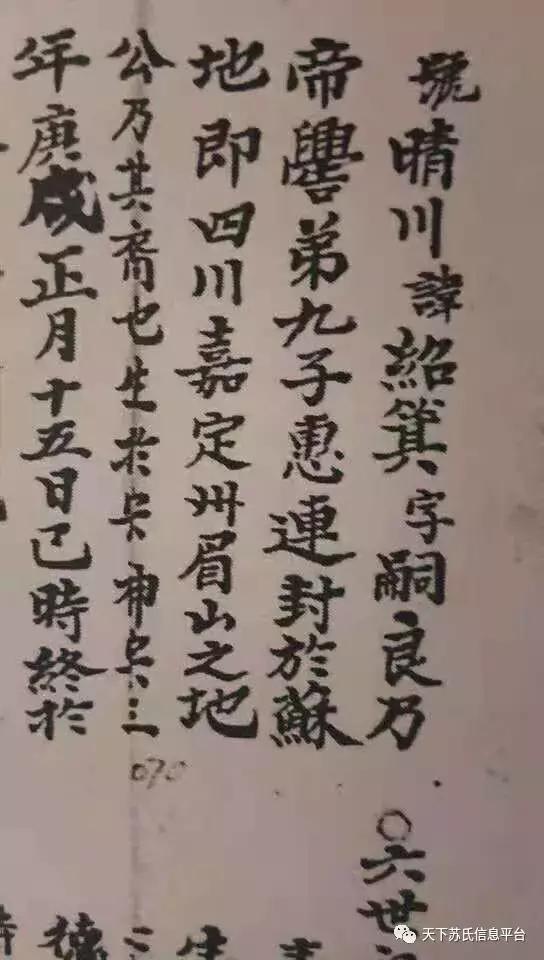 號晴川諱紹箕字嗣良乃
帝嚳弟九子惠連封於蘇
地即四川嘉定州眉山之地
公乃其裔也生於三
年庚戌正月十五日巳時終於
070
〇六世
德
天下苏氏信息平台